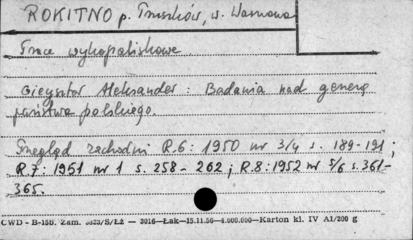 ROKITNO p. Pruszków, w. Warszawa
Prace wykopaliskowe
Gieysztor Aleksander : Badania nad genezą
państwa polskiego.
Przegląd zachodni R.6: 1950 nr 3/4 s. 189-191;
R.7: 1951 nr 1 s. 258-262; R.8: 1952 nr 5/6 s. 361-
365.
CWD - B-150. Zam. /S/Łż — 2016—Łak—15.11.56—4.000.000—Karton kl. IV A1/200 g